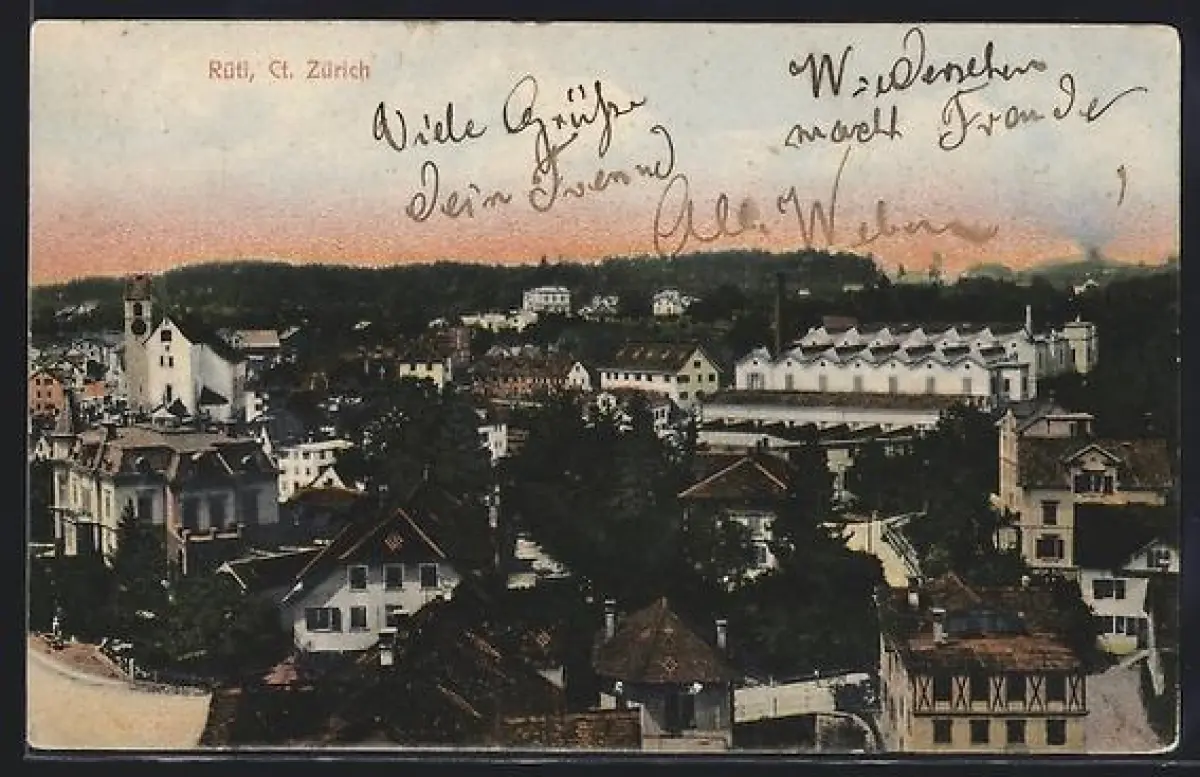 Rüti, Ct. Zürich
Viele Grüße
Dein Freund
Alb. Weber
Wiedersehen
macht Freude
!